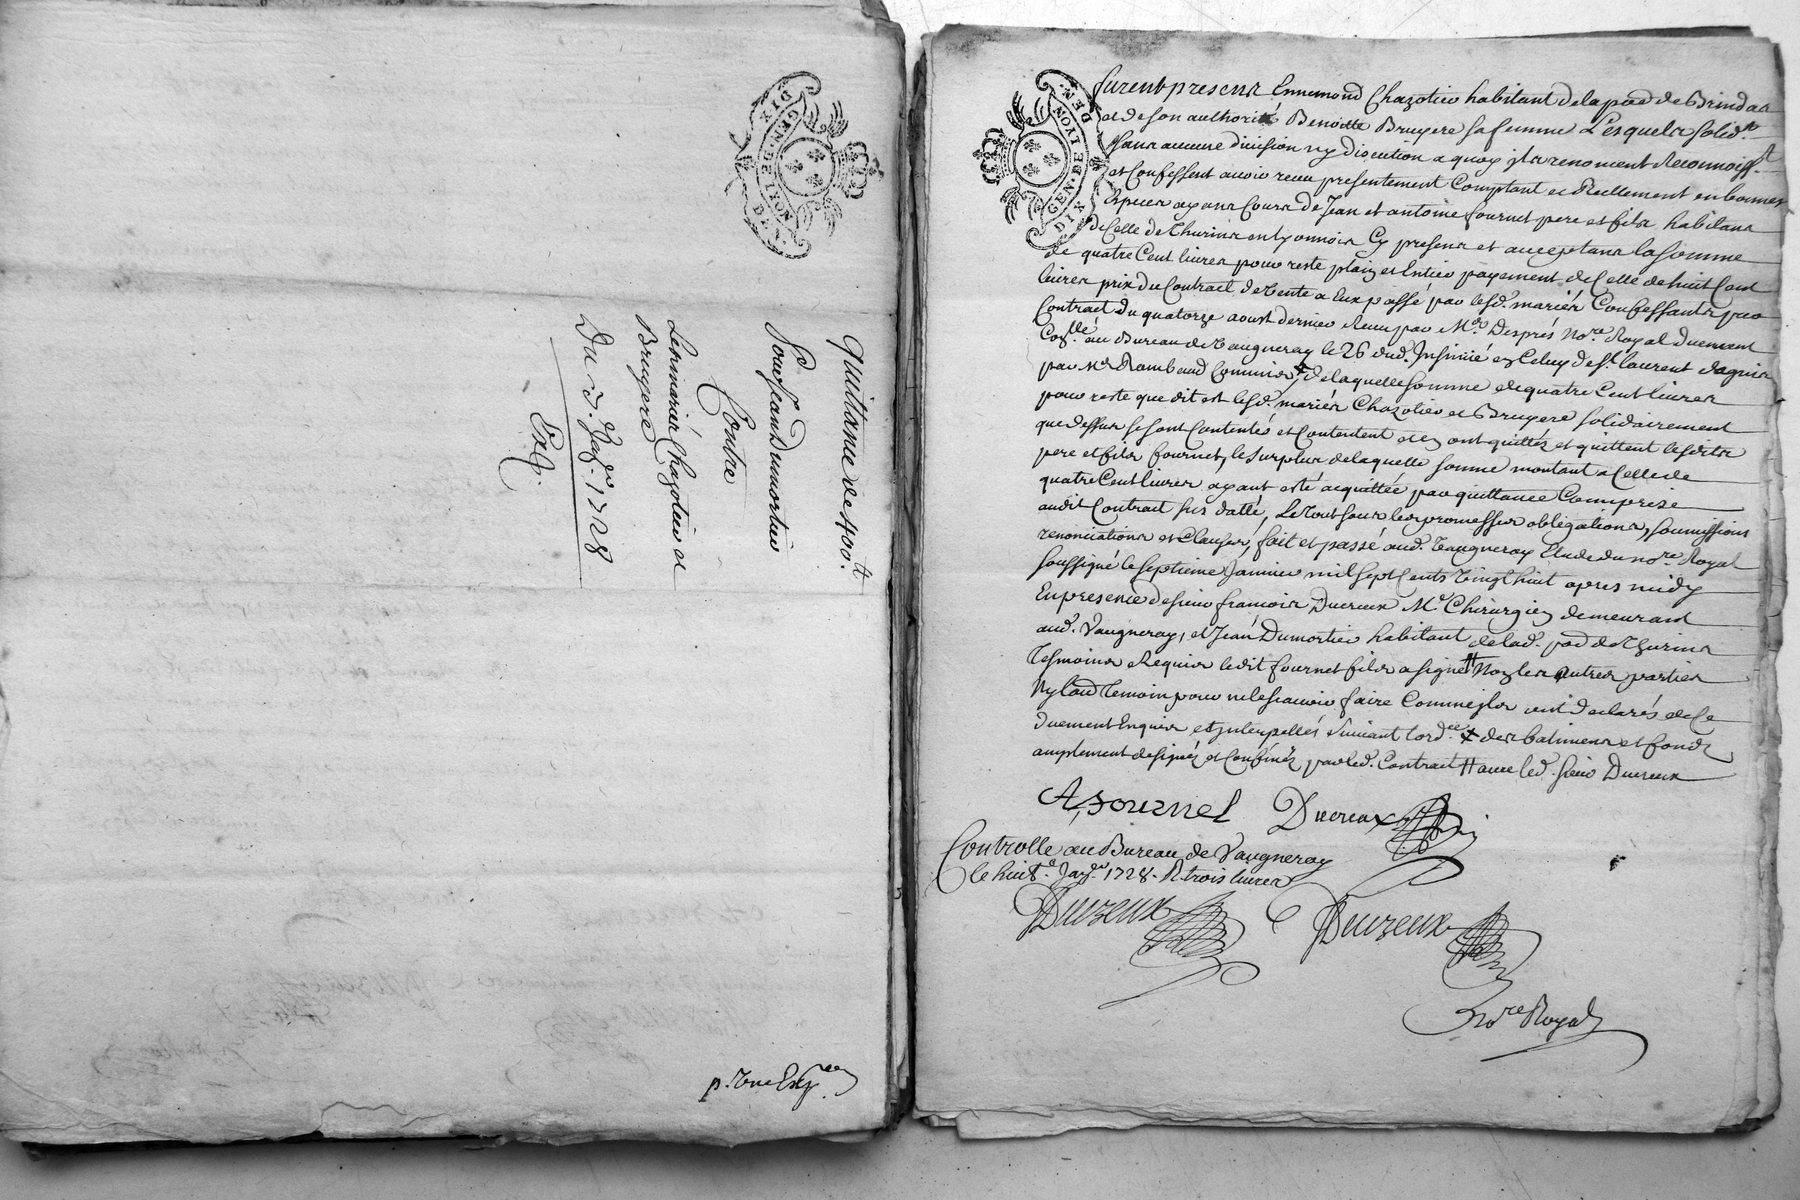 GEN·DE LYON·
DIX DEN·
Quittance de 400.ᵗᵗ
Pour Jean Dumortier
Contre
Les mariés Chazotier et
Bruyere
Du 7. Janᵛ. 1728
Exp.
p. une Exp.
GEN·DE LYON·
DIX DEN·
furent presens Ennemond Chazotier habitant de la par de Brindas
et de son authorité Benoitte Bruyere sa femme Lesquels solid.ᵗ
sans aucune division ny discution a quoy ils renoncent Reconnoiss.ᵗ
et Confessent avoir receu presentement Comptant et Réellement en bonnes
Especes ayans Cours de Jean et antoine fournel pere et fils habitans
de Celle de Thurins en Lyonnois Cy presens et acceptans la somme
de quatre Cent livres pour reste plain et Entier payement de Celle de huit Cent
livres prix du Contract de Vente a eux passé par lesd. mariés Confessants par
Contract du quatorze aoust dernier Receu par Mᵉ. Després Noʳᵉ Royal Duement
Coʳˡˡᵉ au Bureau de Vaugneray le 26 dud. Insinué en Celuy de Sᵗ. laurent dagnis
par Mᵉ Rambaud Commis, ✝ de laquelle somme de quatre Cent livres
pour reste que dit est lesd. mariés Chazotier et Bruyere solidairement
que dessus se sont Contentés et Contentent et en ont quittés et quittent lesdits
pere et fils fournel, le surplus de laquelle somme montant a Celle de
quatre Cent livres ayant esté acquittée par quittance Comprise
audit Contract sus datté, Le tout sous les promesses obligations, soumissions
renonciations et Clauses, fait et passé aud. Vaugneray Etude du noʳᵉ Royal
soussigné le septieme Janvier mil sept Cents Vingt huit apres midy
En presence de sieur françois Ducreux Mᵉ Chirurgien demeurant
aud. Vaugneray, et Jean Dumortier habitant de lad. par de Thurins
Tesmoins Requis ledit fournel fils a signé # Non les autres parties
Ny laud Temoin pour ne le scavoir faire Comme ils ont declarés de Ce
Duement Enquis et Interpellés suivant lord.ᶜᵉ ✝ des batimens et fonds
amplement designés et Confinés par led. Contract # avec led. sieur Ducreux
A, fournel Ducreux
Controlle au Bureau de Vaugneray
le huit.ᵉ Janᵛ. 1728. R trois livres
Duczeux Duczeux
Noʳᵉ Royal